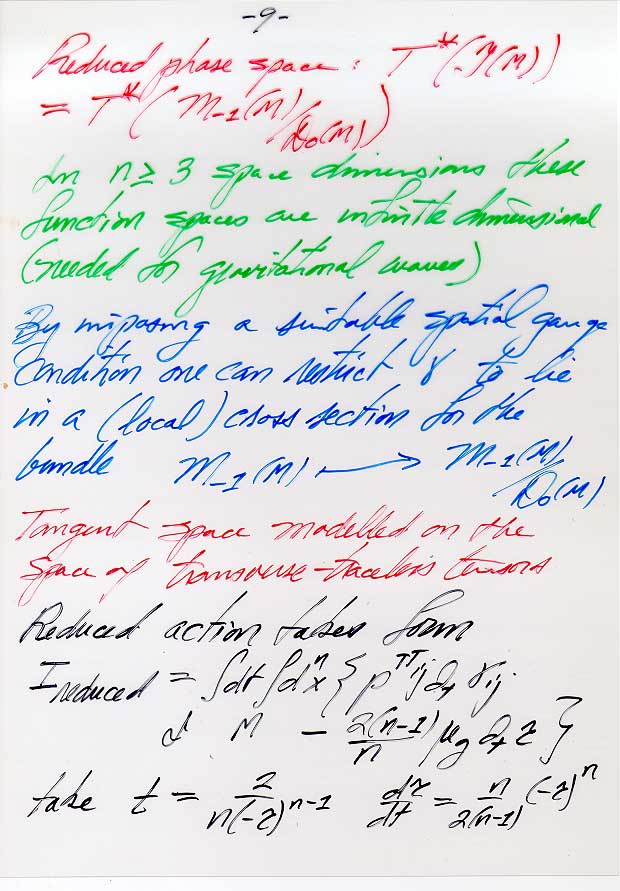 -9-
Reduced phase space: T*(𝒯(M))
= T*(M₋₁(M)/D₀(M))
In n ≥ 3 space dimensions these
function spaces are infinite dimensional
(needed for gravitational waves)
By imposing a suitable spatial gauge
condition one can restrict γ to lie
in a (local) cross section for the
bundle M₋₁(M) ⟶ M₋₁(M)/D₀(M)
Tangent space modelled on the
space of transverse-traceless tensors
Reduced action takes form
I reduced = ∫dt ∫dⁿx { p^{TTij} ∂ₜ γᵢⱼ
M - 2(n-1)/n μ_g ∂ₜ τ }
take t = 2/(n(-τ)^{n-1}) dτ/dt = n/(2(n-1)) (-τ)ⁿ